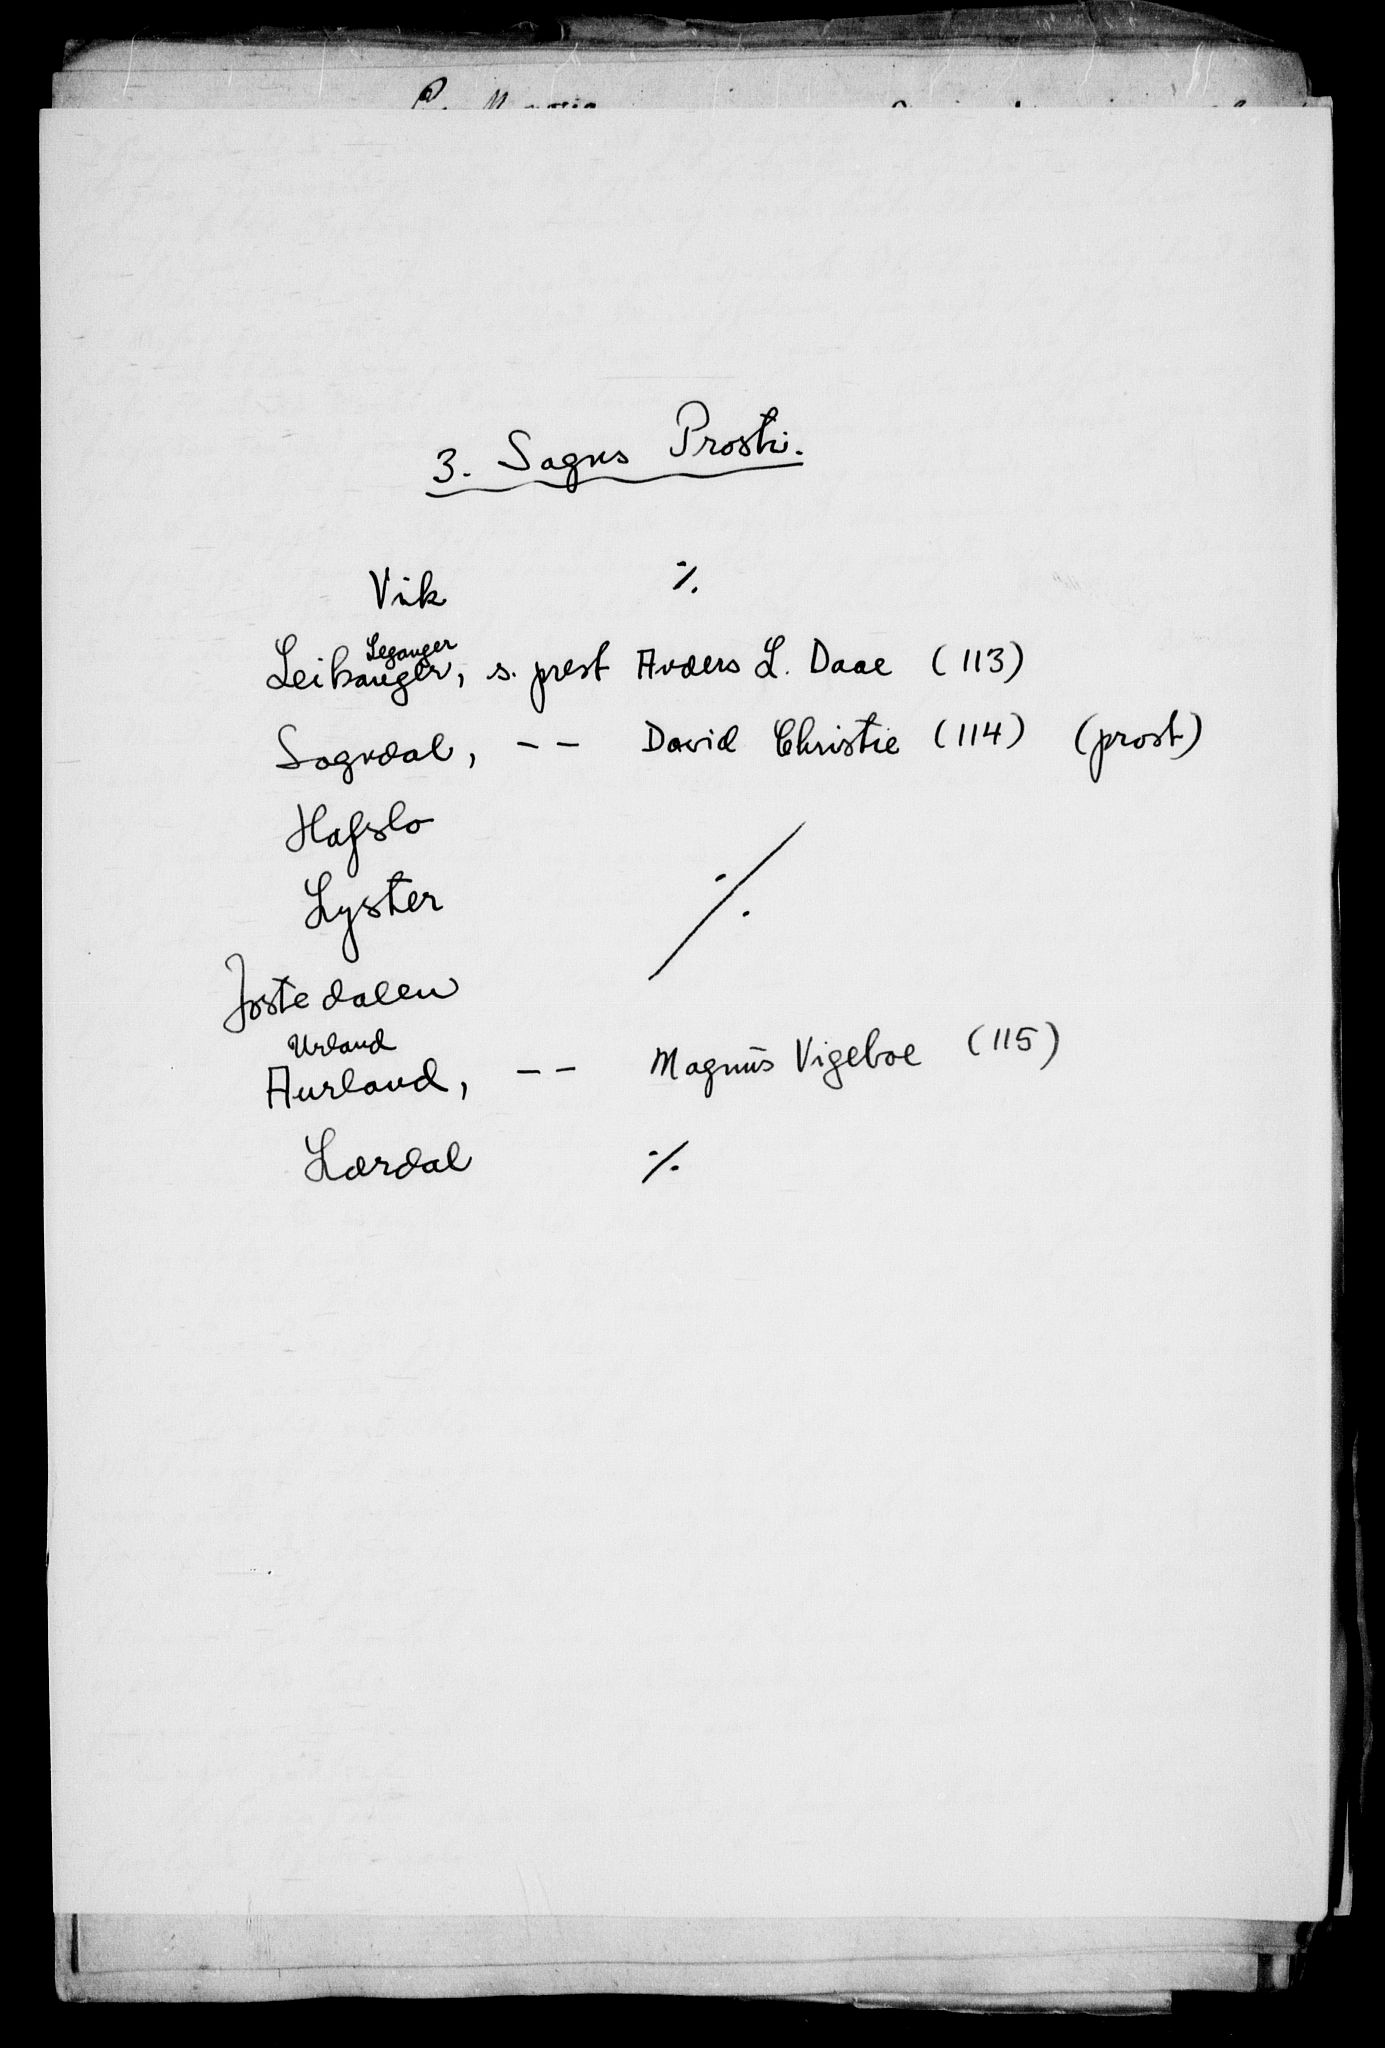 3. Sogns Prosti.
Vik ⁒
Leganger
Leikanger, s. prest Anders L. Daae (113)
Sogndal, -- David Christie (114) (prost)
Hafslo
Lyster ⁒
Jostedalen
Urland
Aurland, -- Magnus Vigeboe (115)
Lærdal ⁒